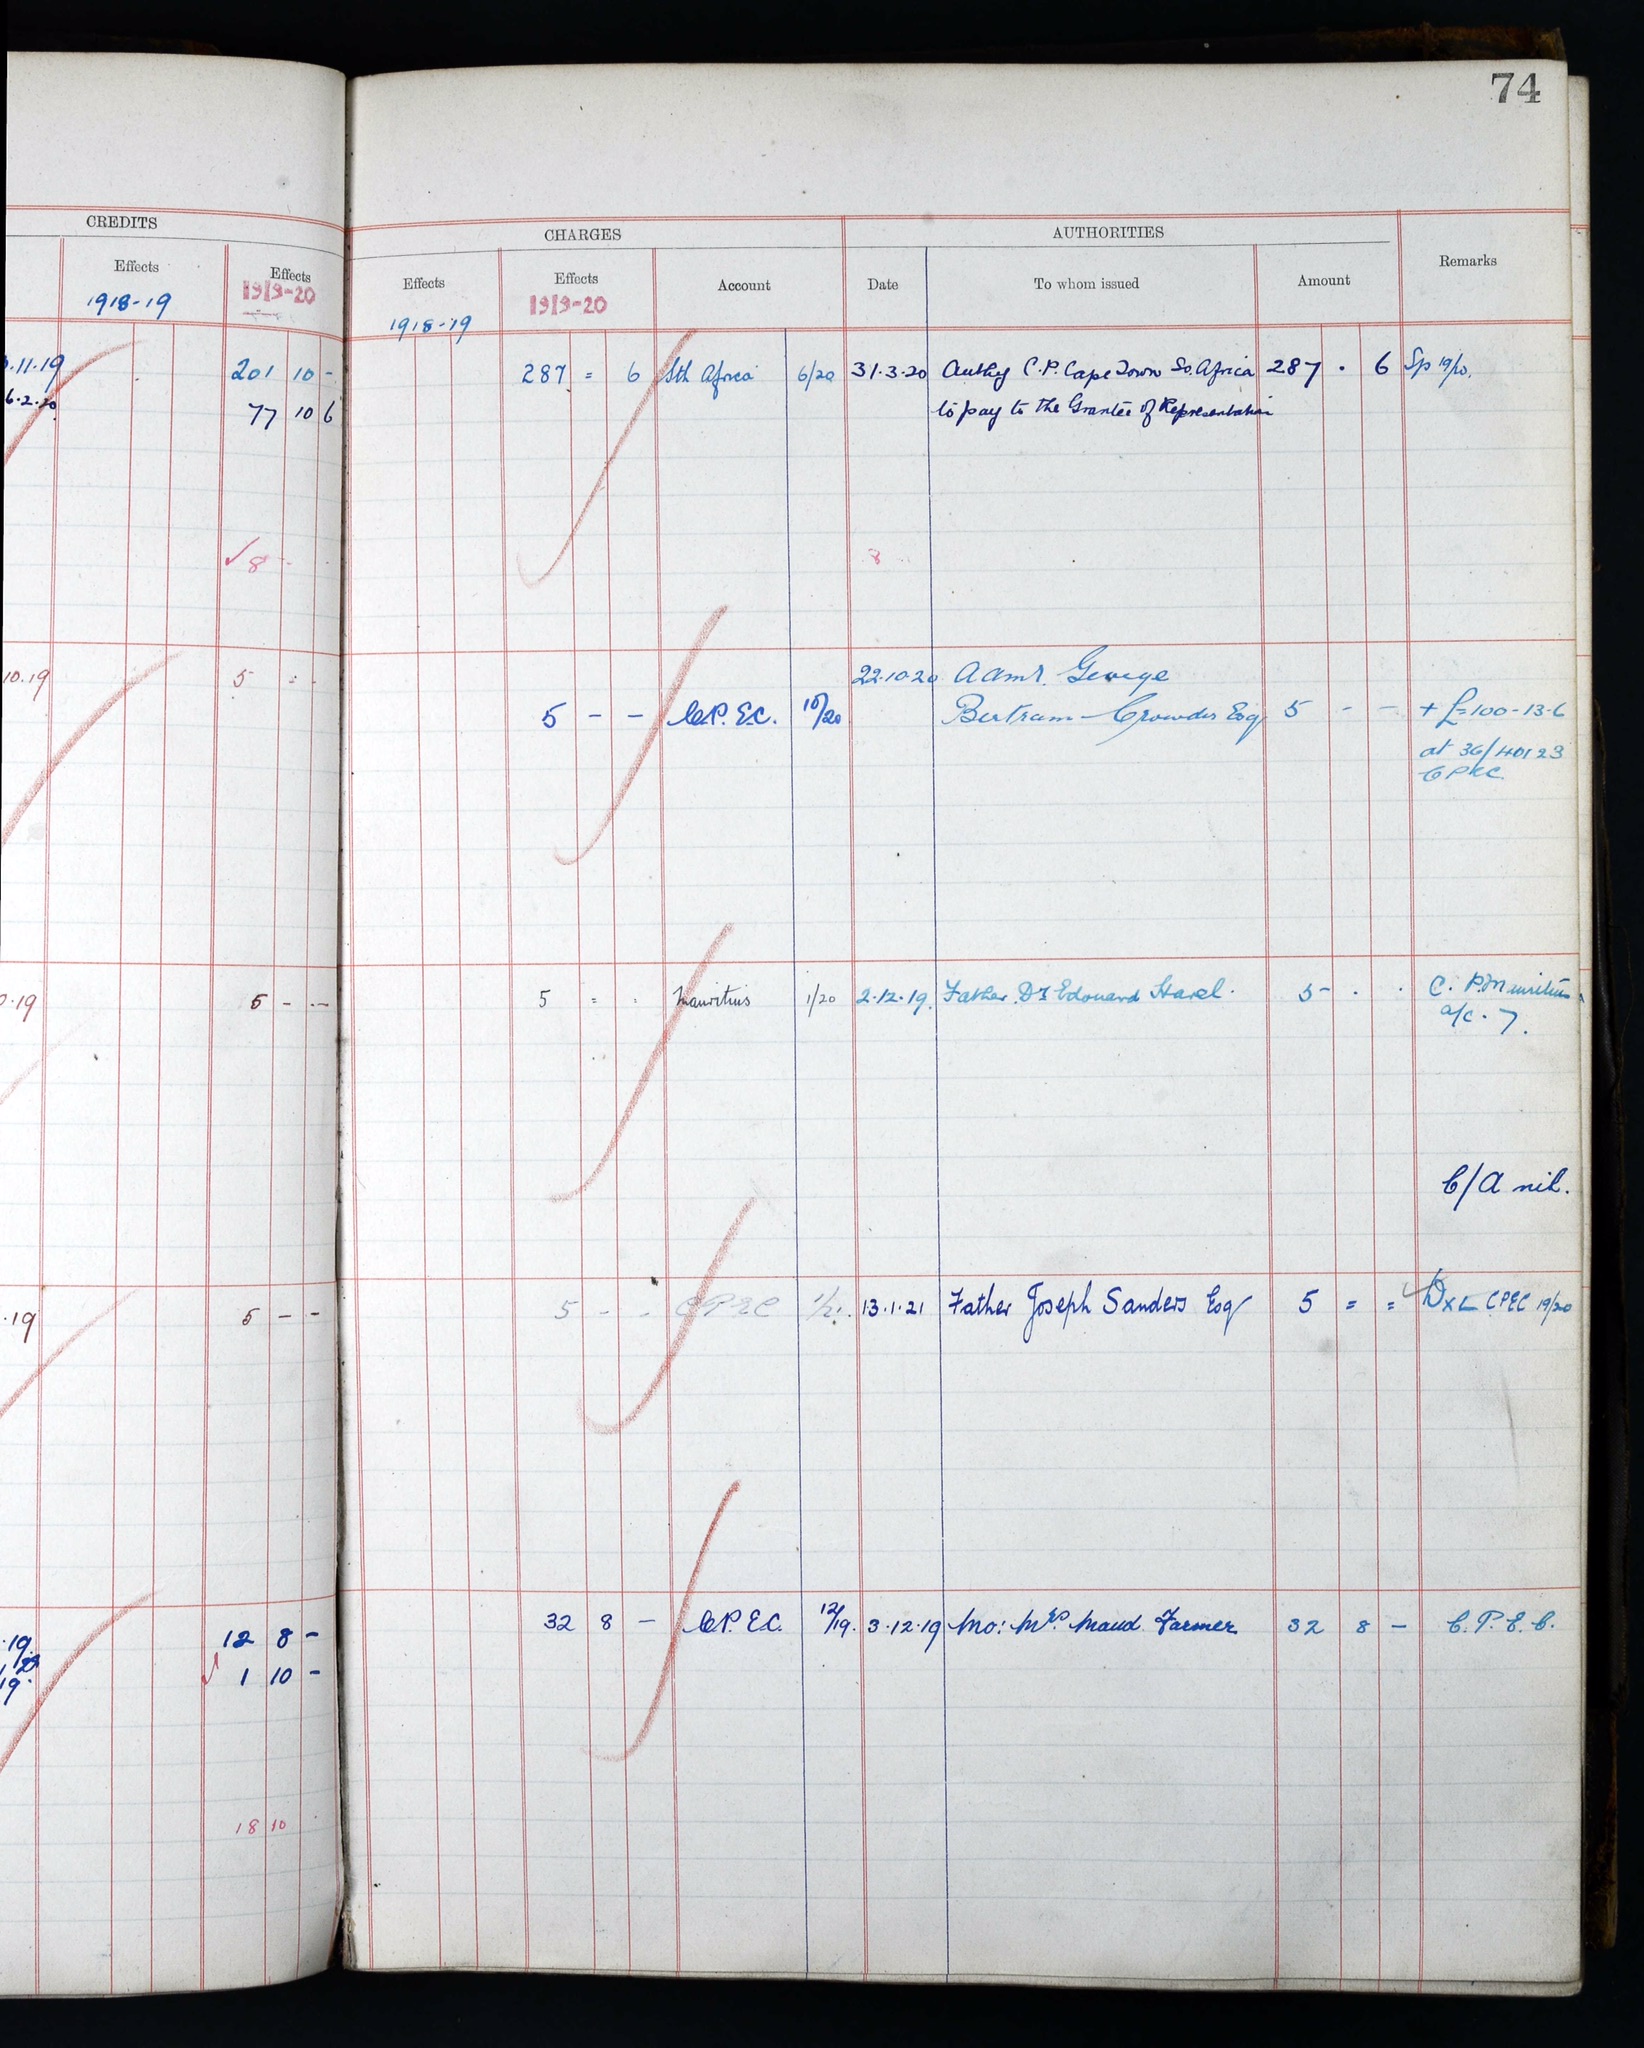 74
CREDITS
Effects Effects
1918-19 1919-20
.11.19 201 10 -
6.2.20 77 10 6
✓ 8 -
10.19 5 - -
.19 5 - -
.19 5 - -
.19 12 8 -
19. 1 10 -
18 10
CHARGES AUTHORITIES Remarks
Effects Effects Account Date To whom issued Amount
1918-19 1919-20
287 = 6 Sth Africa 6/20 31.3.20 Authy C.P. Cape Town So. Africa 287 . 6 Sp 19/20.
to pay to the Grantee of Representation
8
22.10.20 Admr. George
5 - - C.P.E.C. 10/20 Bertram Crowder Esq 5 - - + £=100-13-6
at 36/40123
CPEC
5 = = Mauritius 1/20 2.12.19. Father Dr Edouard Harel. 5 - . . C. P. Mauritius
a/c. 7.
C/A nil.
5 - - CPEC 1/21. 13.1.21 Father Joseph Sanders Esq 5 = = DXL CPEC 19/20
32 8 - C.P.E.C. 12/19. 3.12.19 Mo: Mrs Maud Farmer 32 8 - C.P.E.C.